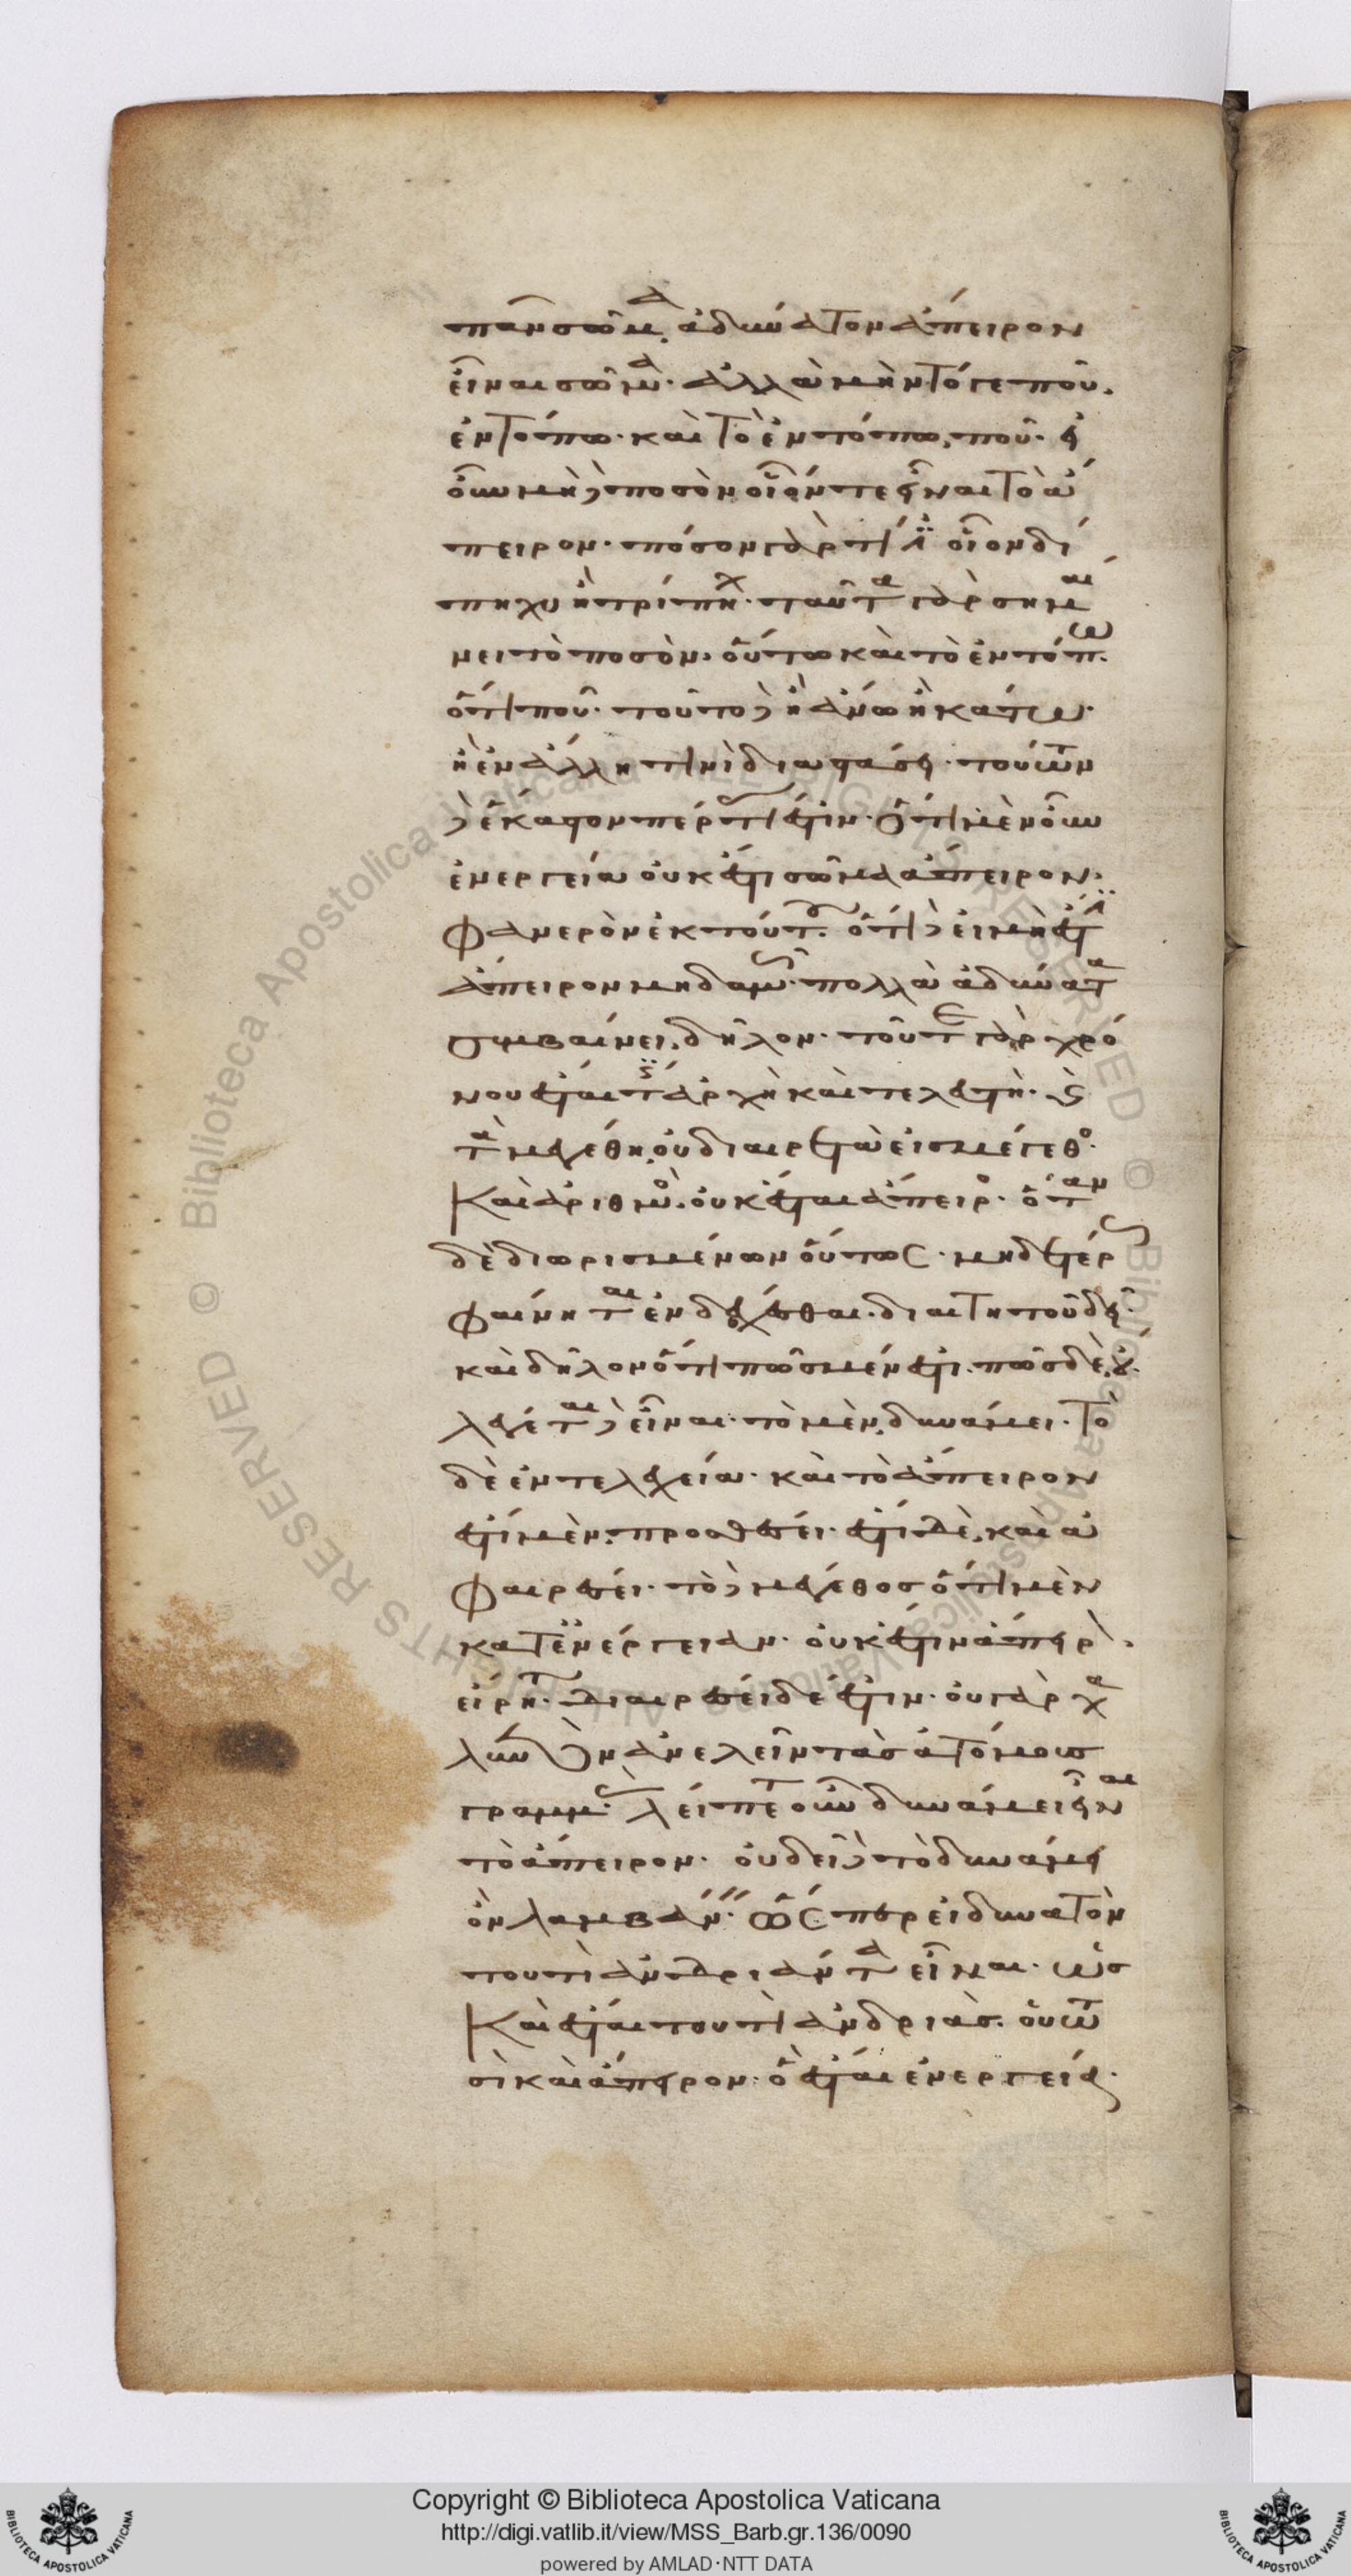 πᾶν σῶμα. ἀδύνατον ἄπειρον
εἶναι σῶμα. ἀλλὰ μὴν τό γε ποῦ.
ἐν τόπω. καὶ τὸ ἐν τόπω, ποῦ. εἰ
οὖν μὴ δὲ ποσὸν οἷόν τε εἶναι τὸ ἄ
πειρον. πόσον γὰρ τί ἔσται οἷον δί
πηχυ ἢ τρίπηχυ. ταῦτα γὰρ σημαί
νει τὸ ποσόν. οὕτω καὶ τὸ ἐν τόπω.
ὅτι ποῦ. τοῦτο δὲ ἢ ἄνω ἢ κάτω.
ἢ ἐν ἄλλη τινὶ διαστάσει. τούτων
δὲ ἕκαστον πέρας τί ἐστιν. ὅτι μὲν οὖν
ἐνεργεία οὐκ ἔστι σῶμα ἄπειρον.
φανερὸν ἐκ τούτων. ὅτι δὲ εἰ μὴ ἔστιν
ἄπειρον μηδαμῶς. πολλὰ ἀδύνατα
συμβαίνει, δῆλον. τοῦ τε γὰρ χρό
νου ἔσται τις ἀρχὴ καὶ τελευτή. καὶ
τὰ μεγέθη, οὐ διαιρετὰ εἰς μεγέθη.
Καὶ ἀριθμὸς. οὐκ ἔσται ἄπειρος. ὅταν
δὲ διωρισμένων οὕτως. μηδετέρως
φαίνηται ἐνδέχεσθαι. διαιτητοῦ δεῖ.
καὶ δῆλον ὅτι πῶς μέν ἐστι. πῶς δὲ οὔ.
λέγεται δὲ εἶναι. τὸ μὲν, δυνάμει. τὸ
δὲ ἐντελεχεία. καὶ τὸ ἄπειρον
ἔστι μὲν, προσθέσει. ἔστι δὲ, καὶ ἀ
φαιρέσει. τὸ δὲ μέγεθος ὅτι μὲν
κατ' ἐνέργειαν. οὐκ ἔστιν ἄπειρον.
εἴρηται. διαιρέσει δέ ἐστιν. οὐ γὰρ χα
λεπὸν ἀνελεῖν τὰς ἀτόμους
γραμμάς. λείπεται οὖν δυνάμει εἶναι
τὸ ἄπειρον. οὐ δεῖ δὲ τὸ δυνάμει
ὂν λαμβάνειν. ὥσπερ εἰ δυνατὸν
τουτὶ ἀνδριάντα εἶναι. ὡς
Καὶ ἔσται τουτὶ ἀνδριὰς. οὕτω
σὶ καὶ ἄπειρον. ὃ ἔσται ἐνεργεία.
Copyright © Biblioteca Apostolica Vaticana
http://digi.vatlib.it/view/MSS_Barb.gr.136/0090
powered by AMLAD·NTT DATA